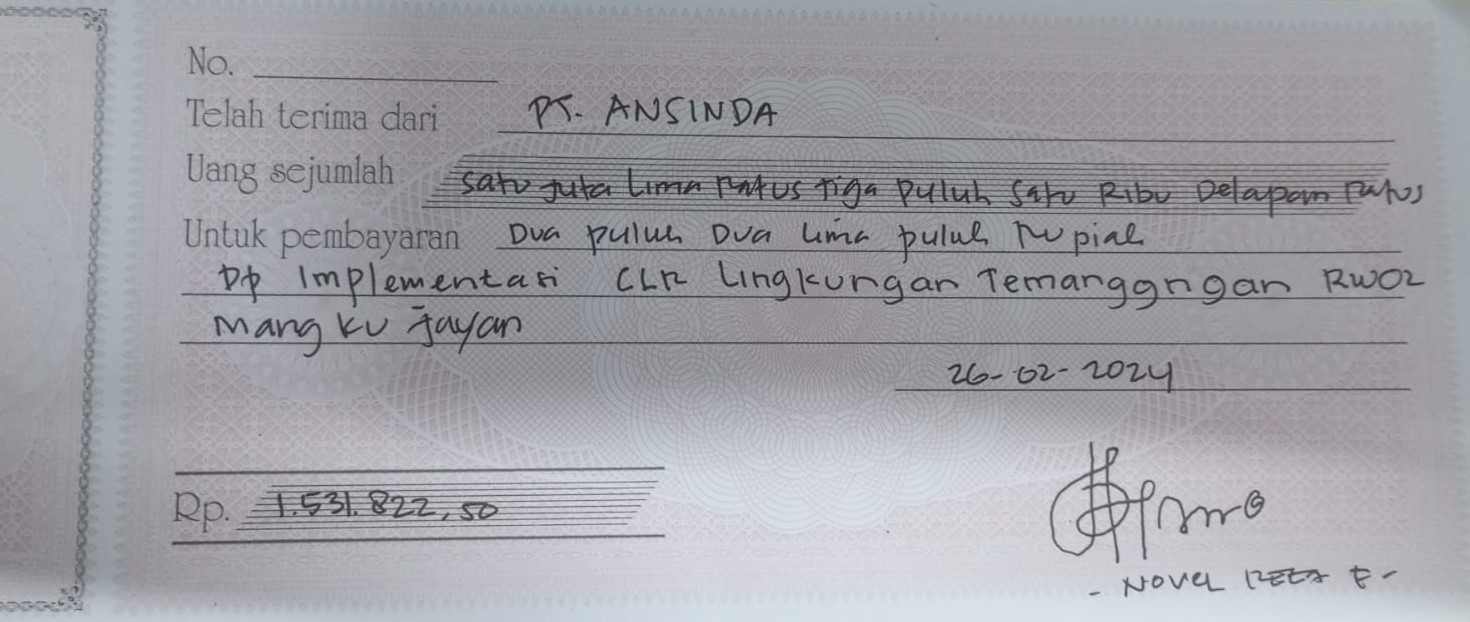 No.
Telah terima dari PT. ANSINDA
Uang sejumlah satu juta Lima Ratus tiga puluh Satu Ribu Delapam Ratus
Untuk pembayaran Dua puluh Dua Lima puluh Rupiah
Dp Implementasi CLR Lingkungan Temanggngan RW02
Mangku jayan
26-02-2024
Rp. 1.531.822,50
- NOVEL REZA F -